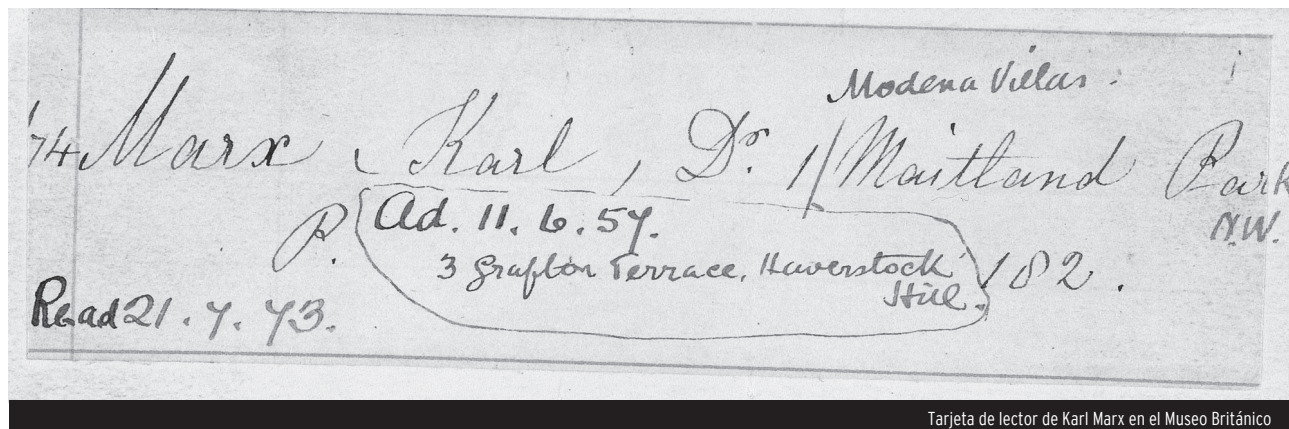 Modena Villas.
74 Marx, Karl, Dr. 1/ Maitland Park
N.W.
P. Ad. 11. 6. 57.
3 Grafton Terrace, Haverstock Hill. 182.
Read 21. 7. 73.
Tarjeta de lector de Karl Marx en el Museo Británico